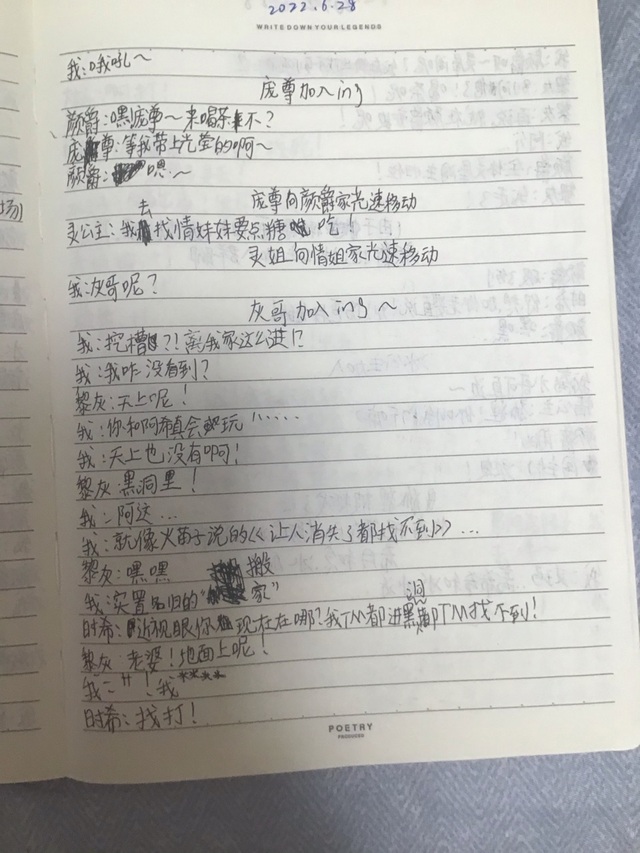 2022.6.28
WRITE DOWN YOUR LEGENDS
我:哦吼~
庞尊加入ing
颜爵:嘿庞尊~来喝茶不?
庞尊:等我带上光莹的啊~
颜爵:嗯~
庞尊向颜爵家光速移动
灵公主:我去找情妹妹要点糖吃!
灵姐向情姐家光速移动
我:灰哥呢?
灰哥加入ing~
我:挖槽?!离我家这么进!?
我:我咋没有到!?
黎灰:天上呢!
我:你和阿希真会玩......
我:天上也没有啊!
黎灰:黑洞里!
我:阿这...
我:就像火苗子说的《让人消失了都找不到》...
黎灰:嘿嘿
我:实置名归的"搬家"
时希:近视眼你现在在哪?我TM都进黑洞都TM找不到!
黎灰:老婆!地面上呢!
我:"!我****
时希:找打!
POETRY
PRODUCED
场)